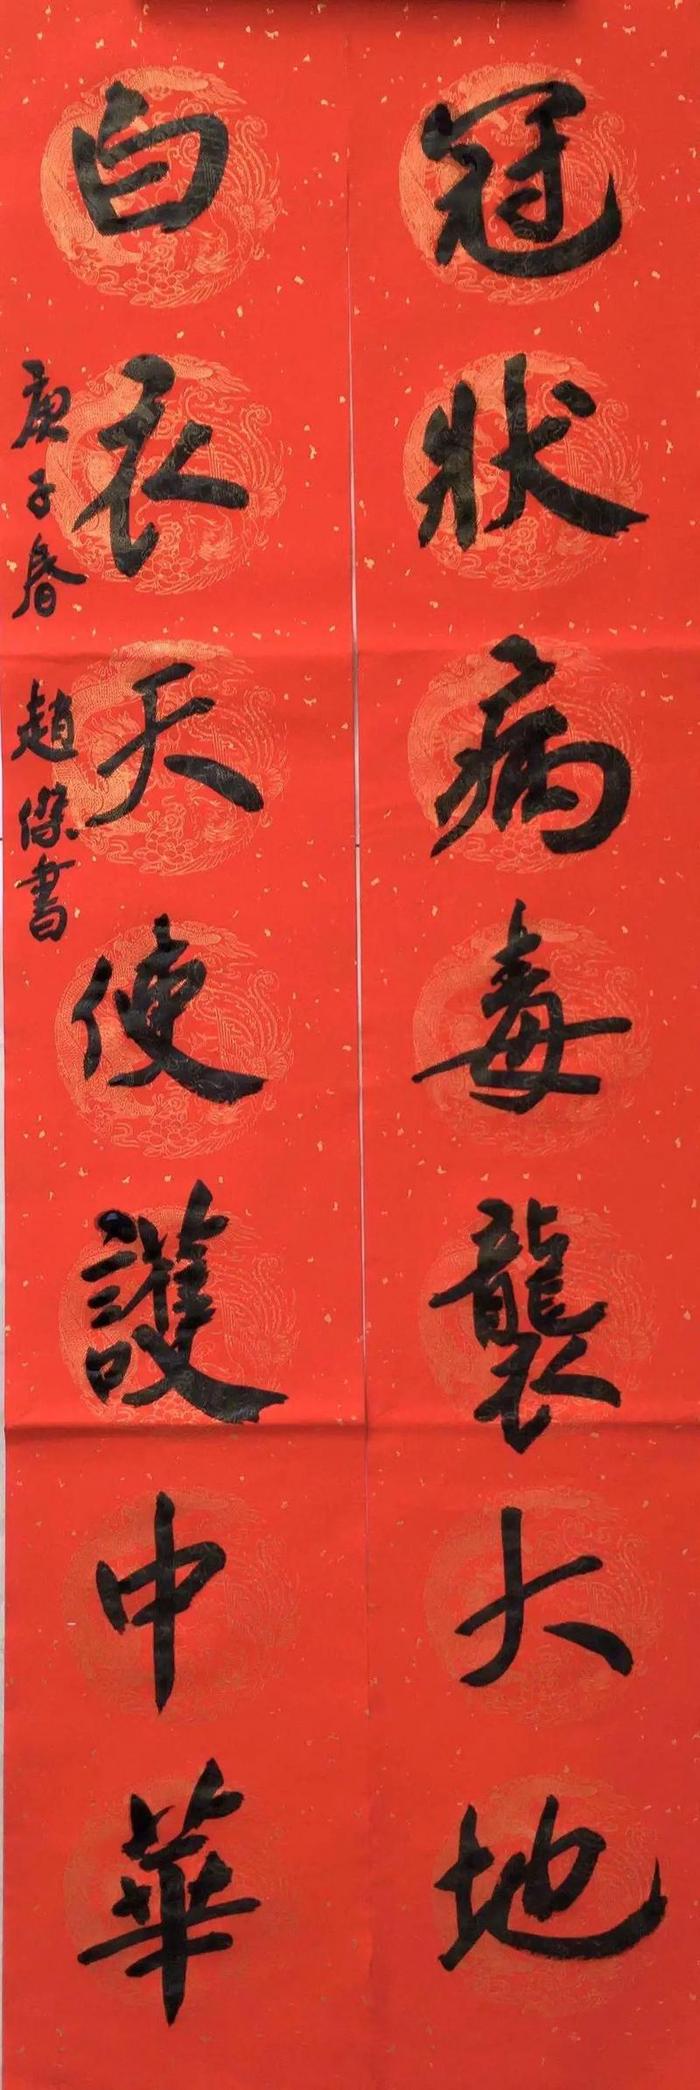 冠狀病毒襲大地
白衣天使護中華
庚子春 趙傑書